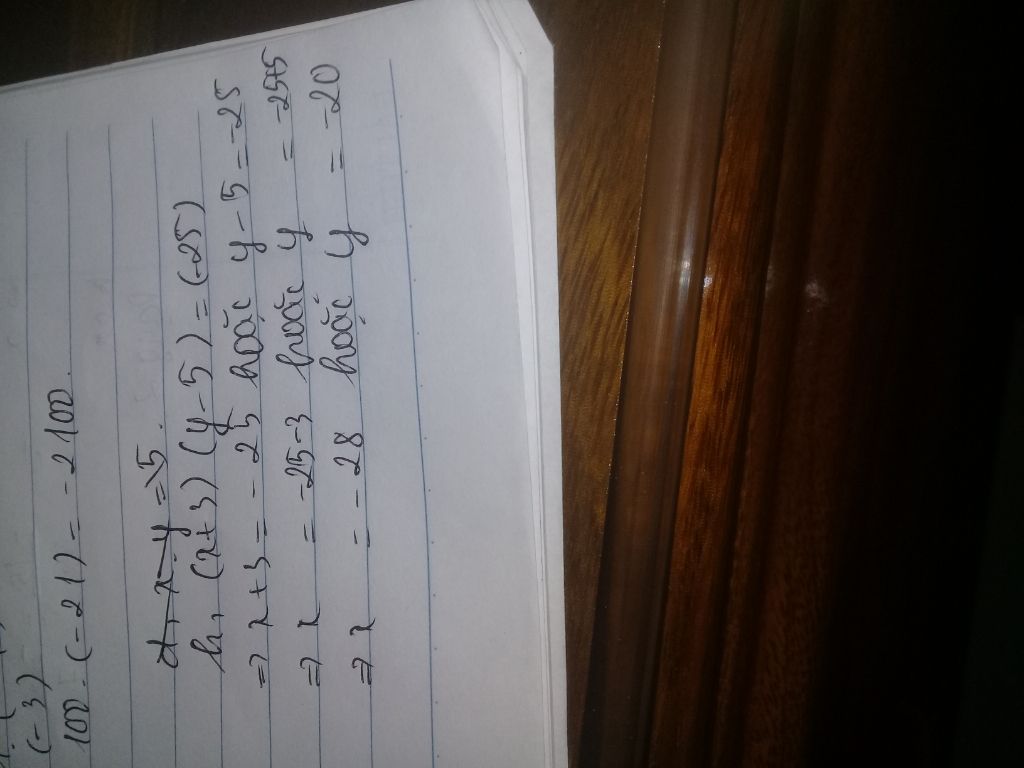 (-3)
100. (-21) = -2100.
d, x-y=5.
h, (x+3) (y-5) = (-25)
=> x+3 = -25 hoặc y-5 = -25
=> x = -25-3 hoặc y = -25+5
=> x = -28 hoặc y = -20